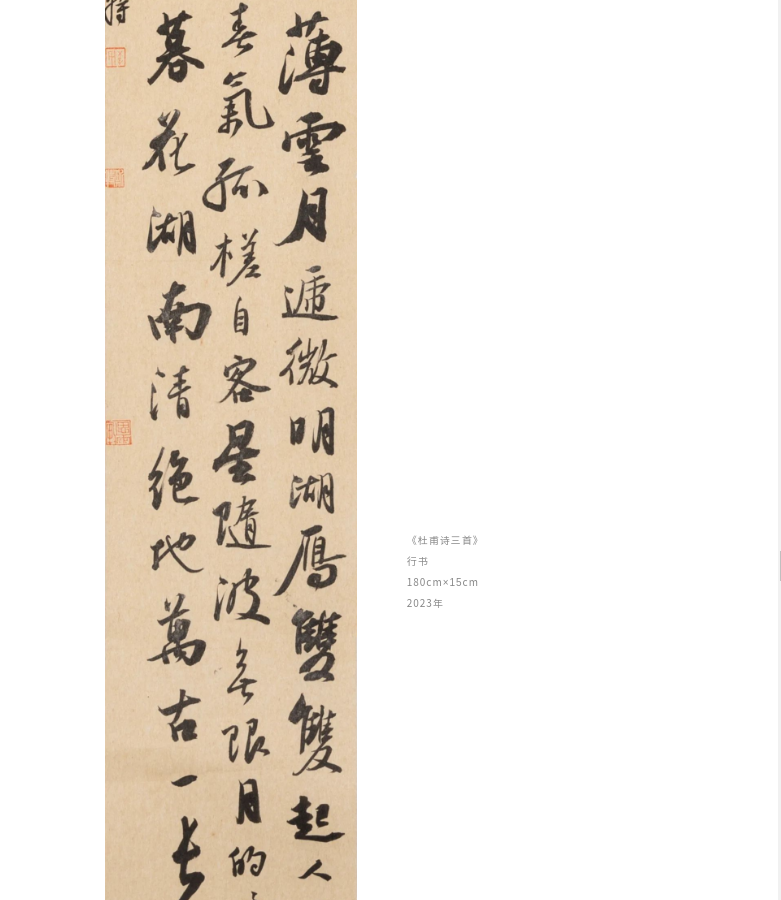 薄雲月遞微明湖雁雙雙起人
春氣孤槎自客星隨波無限月的
暮花湖南清絶地萬古一長
《杜甫诗三首》
行书
180cm×15cm
2023年